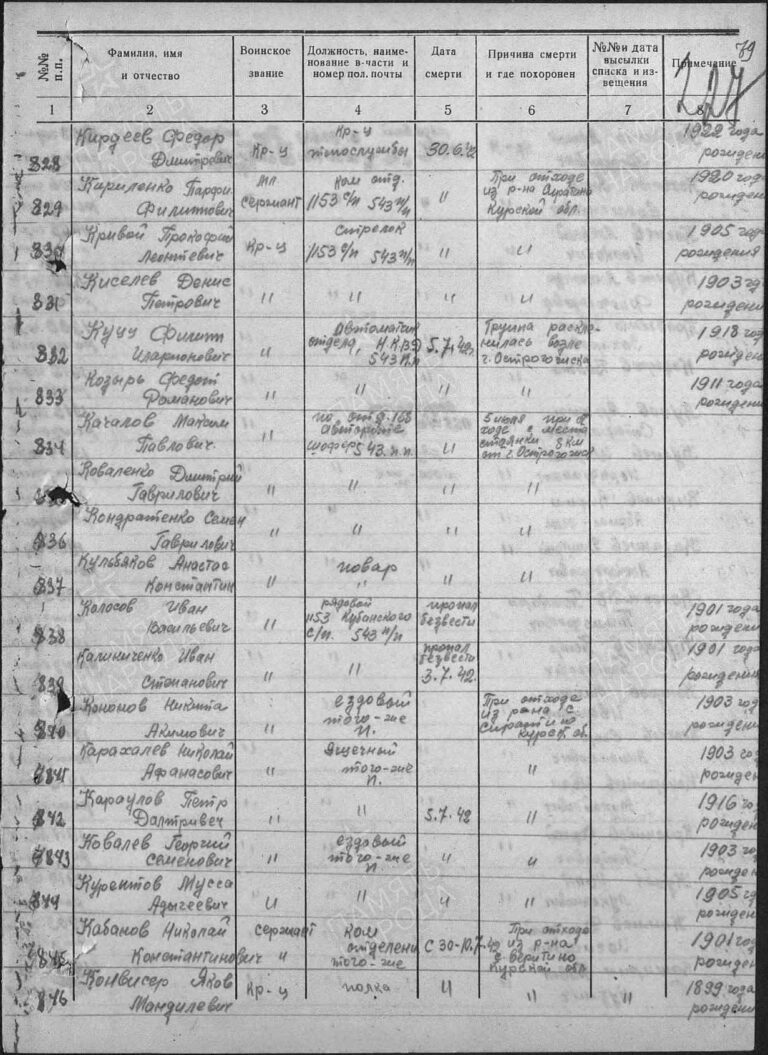 79
227
№№ п.п.
Фамилия, имя и отчество
Воинское звание
Должность, наименование в-части и номер пол. почты
Дата смерти
Причина смерти и где похоронен
№№ и дата высылки списка и извещения
Примечание
1 2 3 4 5 6 7 8
828 Кирдеев Федор Дмитрович Кр-ц Кр-ц 30.6.42 1922 года рождения
829 Кириленко Парфи. Филиппович мл сержант ком отд. 1153 с/п 543 п/п " При отходе из р-на Курской обл 1920 года рождения
830 Кривой Прокофий Леонтевич Кр-ц стрелок 1153 с/п 543 п/п " " 1905 года рождения
831 Киселев Денис Петрович " " " " 1903 год рождени
832 Куцу Филипп Иларионович " Автоматчик отдела Н.К.В.Д 543 п.п 5.7.42 Группа раскло- нилась возле г. Острогожска 1918 год рожден
833 Козырь Федот Романович " " " " 1911 года рождени
834 Качалов Максим Павлович " по отд. 168 автороте шофер 543 п.п. " 5 июля при от ходе с места стоянки 8 км от г. Острогожск
Коваленко Дмитрий Гаврилович " " " "
836 Кондратенко Семен Гаврилович " " " "
837 Кульбяков Анастас Константин " повар " " "
838 Колосов Иван Васильевич " рядовой 1153 Кубанского с/п. 543 п/п пропал безвести 1901 года рождени
839 Калиниченко Иван Степанович " " пропал безвести 3.7.42 1901 года рождения
840 Кононов Никита Акимович " ездовый того-же п. При отходе из рана с. Курск об. 1903 год рождени
841 Карахалев Николай Афанасович " Ящечный того-же п. " 1903 год рожден
842 Караулов Петр " " 5.7.42 " 1916 го рожден
843 Ковалев Георгий Семенович " ездовый того-же п " " 1903 го рожден
844 Курентов Мусса Адыгеевич " " " " 1905 го рожден
845 Кабанов Николай Константинович сержант " ком отделени того-же с 30-10.7.42 При отходе из р-на с веритино Курской обл 1901 год рожден
846 Конвисер Яков Мандилевич Кр-ц полка " " " 1899 года рождени